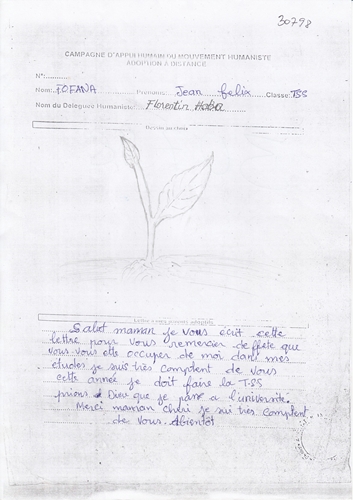 30798
CAMPAGNE D'APPUI HUMAIN DU MOUVEMENT HUMANISTE
ADOPTION A DISTANCE
N°:
Nom: FOFANA Prénoms: Jean felix Classe: TSS
Nom du Délégué Humaniste: Florentin Haba
Dessin au choix
Salut maman je vous écrit cette
lettre pour vous remercier de fete que
vous vous ete occuper de moi dans mes
études je suis très comptent de vous
cette année je doit faire la T-SS
prions Dieu que je passe a l'université.
Merci maman cheri je sui très comptent
de vous. Abientôt